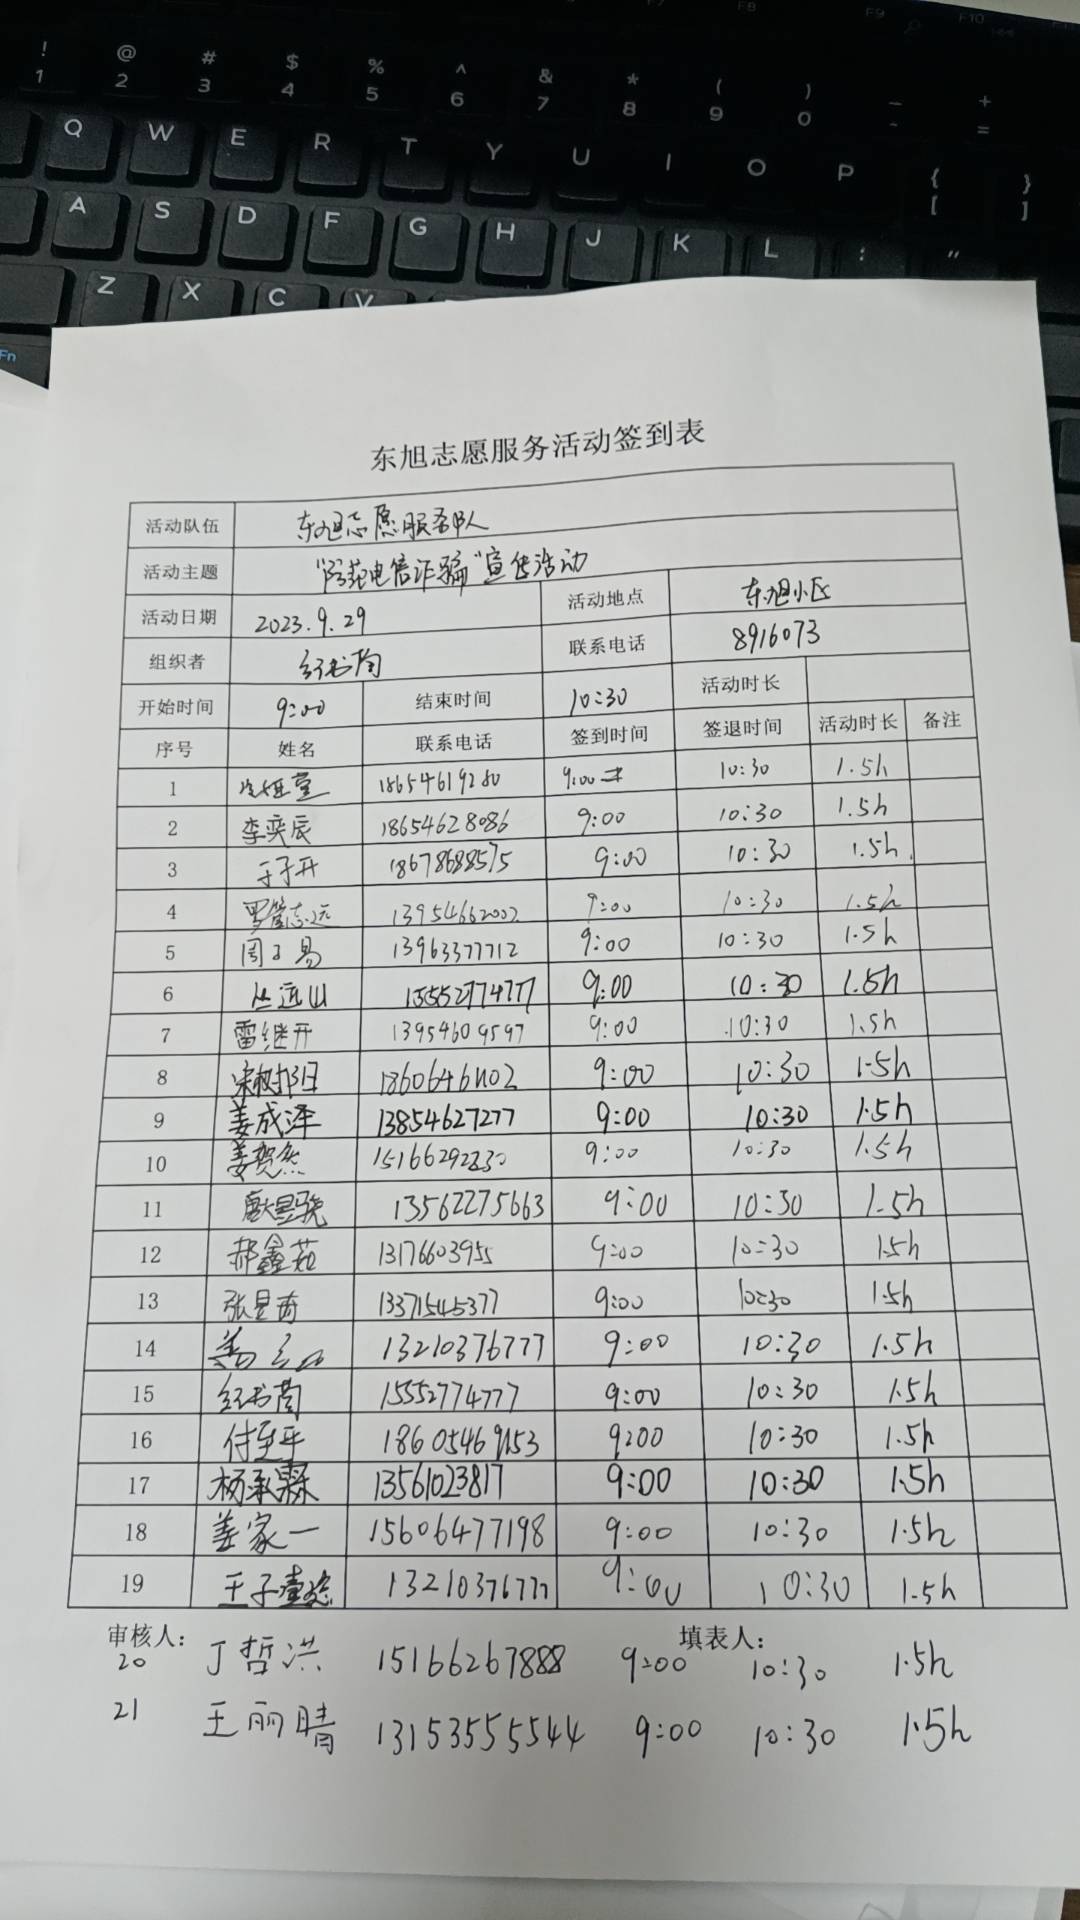 ! @ # $ % ^ & * ( ) — +
1 2 3 4 5 6 7 8 9 0 - =
Q W E R T Y U I O P { }
[ ]
A S D F G H J K L : "
Z X C V
Fn
东旭志愿服务活动签到表
活动队伍 东旭志愿服务队
活动主题 "防范电信诈骗"宣传活动
活动日期 2023.9.29 活动地点 东旭小区
组织者 纪书简 联系电话 8916073
开始时间 9:00 结束时间 10:30 活动时长
序号 姓名 联系电话 签到时间 签退时间 活动时长 备注
1 18654619280 9:00 10:30 1.5h
2 李奕辰 18654628086 9:00 10:30 1.5h
3 于子开 18678688575 9:00 10:30 1.5h
4 罗管志远 13954662002 9:00 10:30 1.5h
5 周子易 13963377712 9:00 10:30 1.5h
6 丛远山 15552774777 9:00 10:30 1.5h
7 雷继开 13954609597 9:00 10:30 1.5h
8 9:00 10:30 1.5h
9 姜成泽 13854627277 9:00 10:30 1.5h
10 姜贺然 15166292830 9:00 10:30 1.5h
11 13562275663 9:00 10:30 1.5h
12 郝鑫茹 13176603955 9:00 10:30 1.5h
13 13371545377 9:00 10:30 1.5h
14 13210376777 9:00 10:30 1.5h
15 纪书简 15552774777 9:00 10:30 1.5h
16 付至平 9:00 10:30 1.5h
17 杨承霖 13561023817 9:00 10:30 1.5h
18 姜家一 15606477198 9:00 10:30 1.5h
19 王子 13210376777 9:00 10:30 1.5h
审核人: 填表人:
20 丁哲洪 15166267888 9:00 10:30 1.5h
21 王丽晴 13153555544 9:00 10:30 1.5h